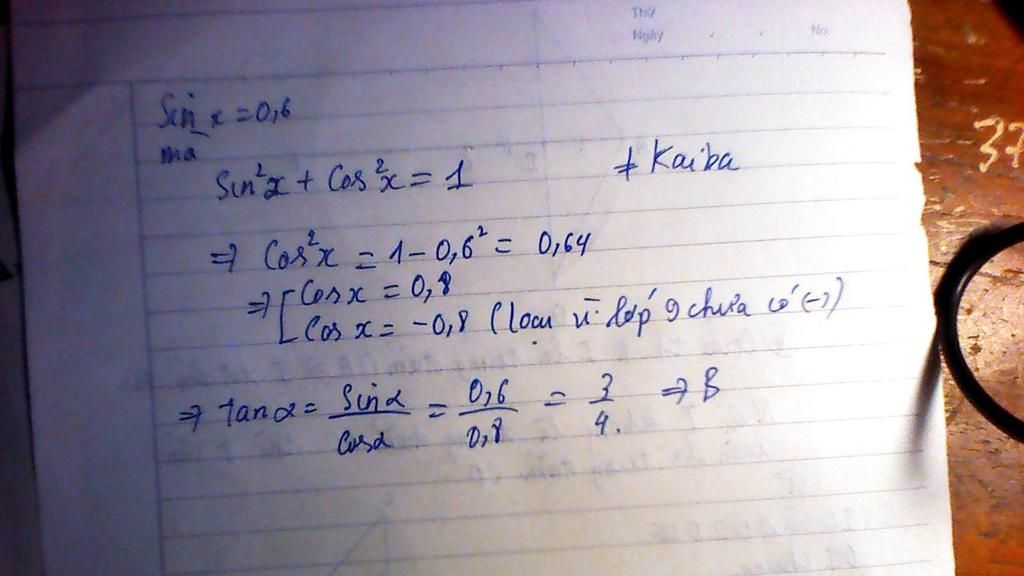 Thứ
Ngày . . No.
Sin x = 0,6
mà
Sin²x + Cos²x = 1
+ Kaiba
37
⇒ Cos²x = 1 - 0,6² = 0,64
⇒ [ Cos x = 0,8
Cos x = -0,8 (loại vì lớp 9 chưa có (-))
⇒ Tan α = Sin α / Cos α = 0,6 / 0,8 = 3 / 4. ⇒ B